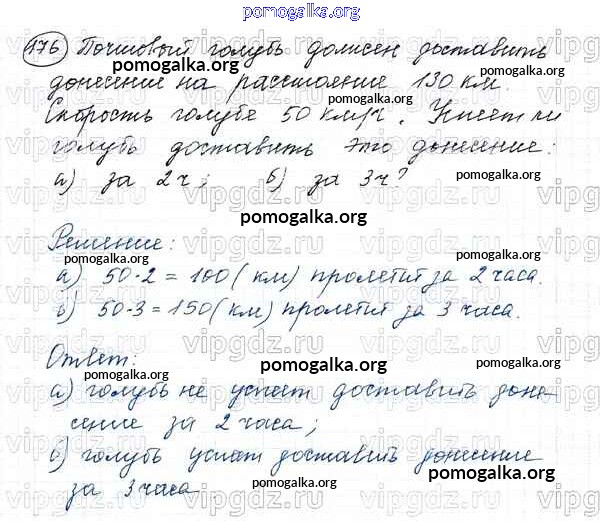 pomogalka.org
176 Почтовый голубь должен доставить
донесение на расстояние 130 км.
pomogalka.org
Скорость голубя 50 км/ч. Успеет ли
голубь доставить это донесение:
а) за 2ч; б) за 3ч?
pomogalka.org
Решение:
pomogalka.org
а) 50·2=100(км) пролетит за 2 часа.
б) 50·3=150(км) пролетит за 3 часа.
Ответ:
pomogalka.org
pomogalka.org
а) голубь не успеет доставить доне
сение за 2 часа;
pomogalka.org
б) голубь успеет доставить донесение
pomogalka.org
за 3 часа
vipgdz.ru